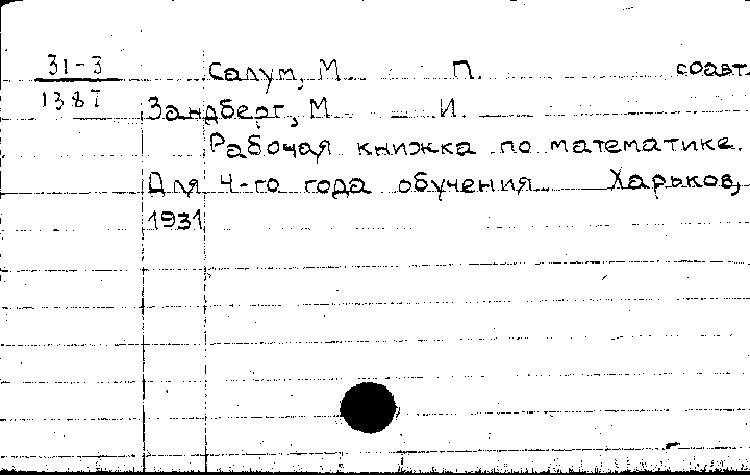 31-3 Салум, М. П. соавт.
1387 Зандберг, М. И.
Рабочая книжка по математике.
Для 4-го года обучения. Харьков,
1931